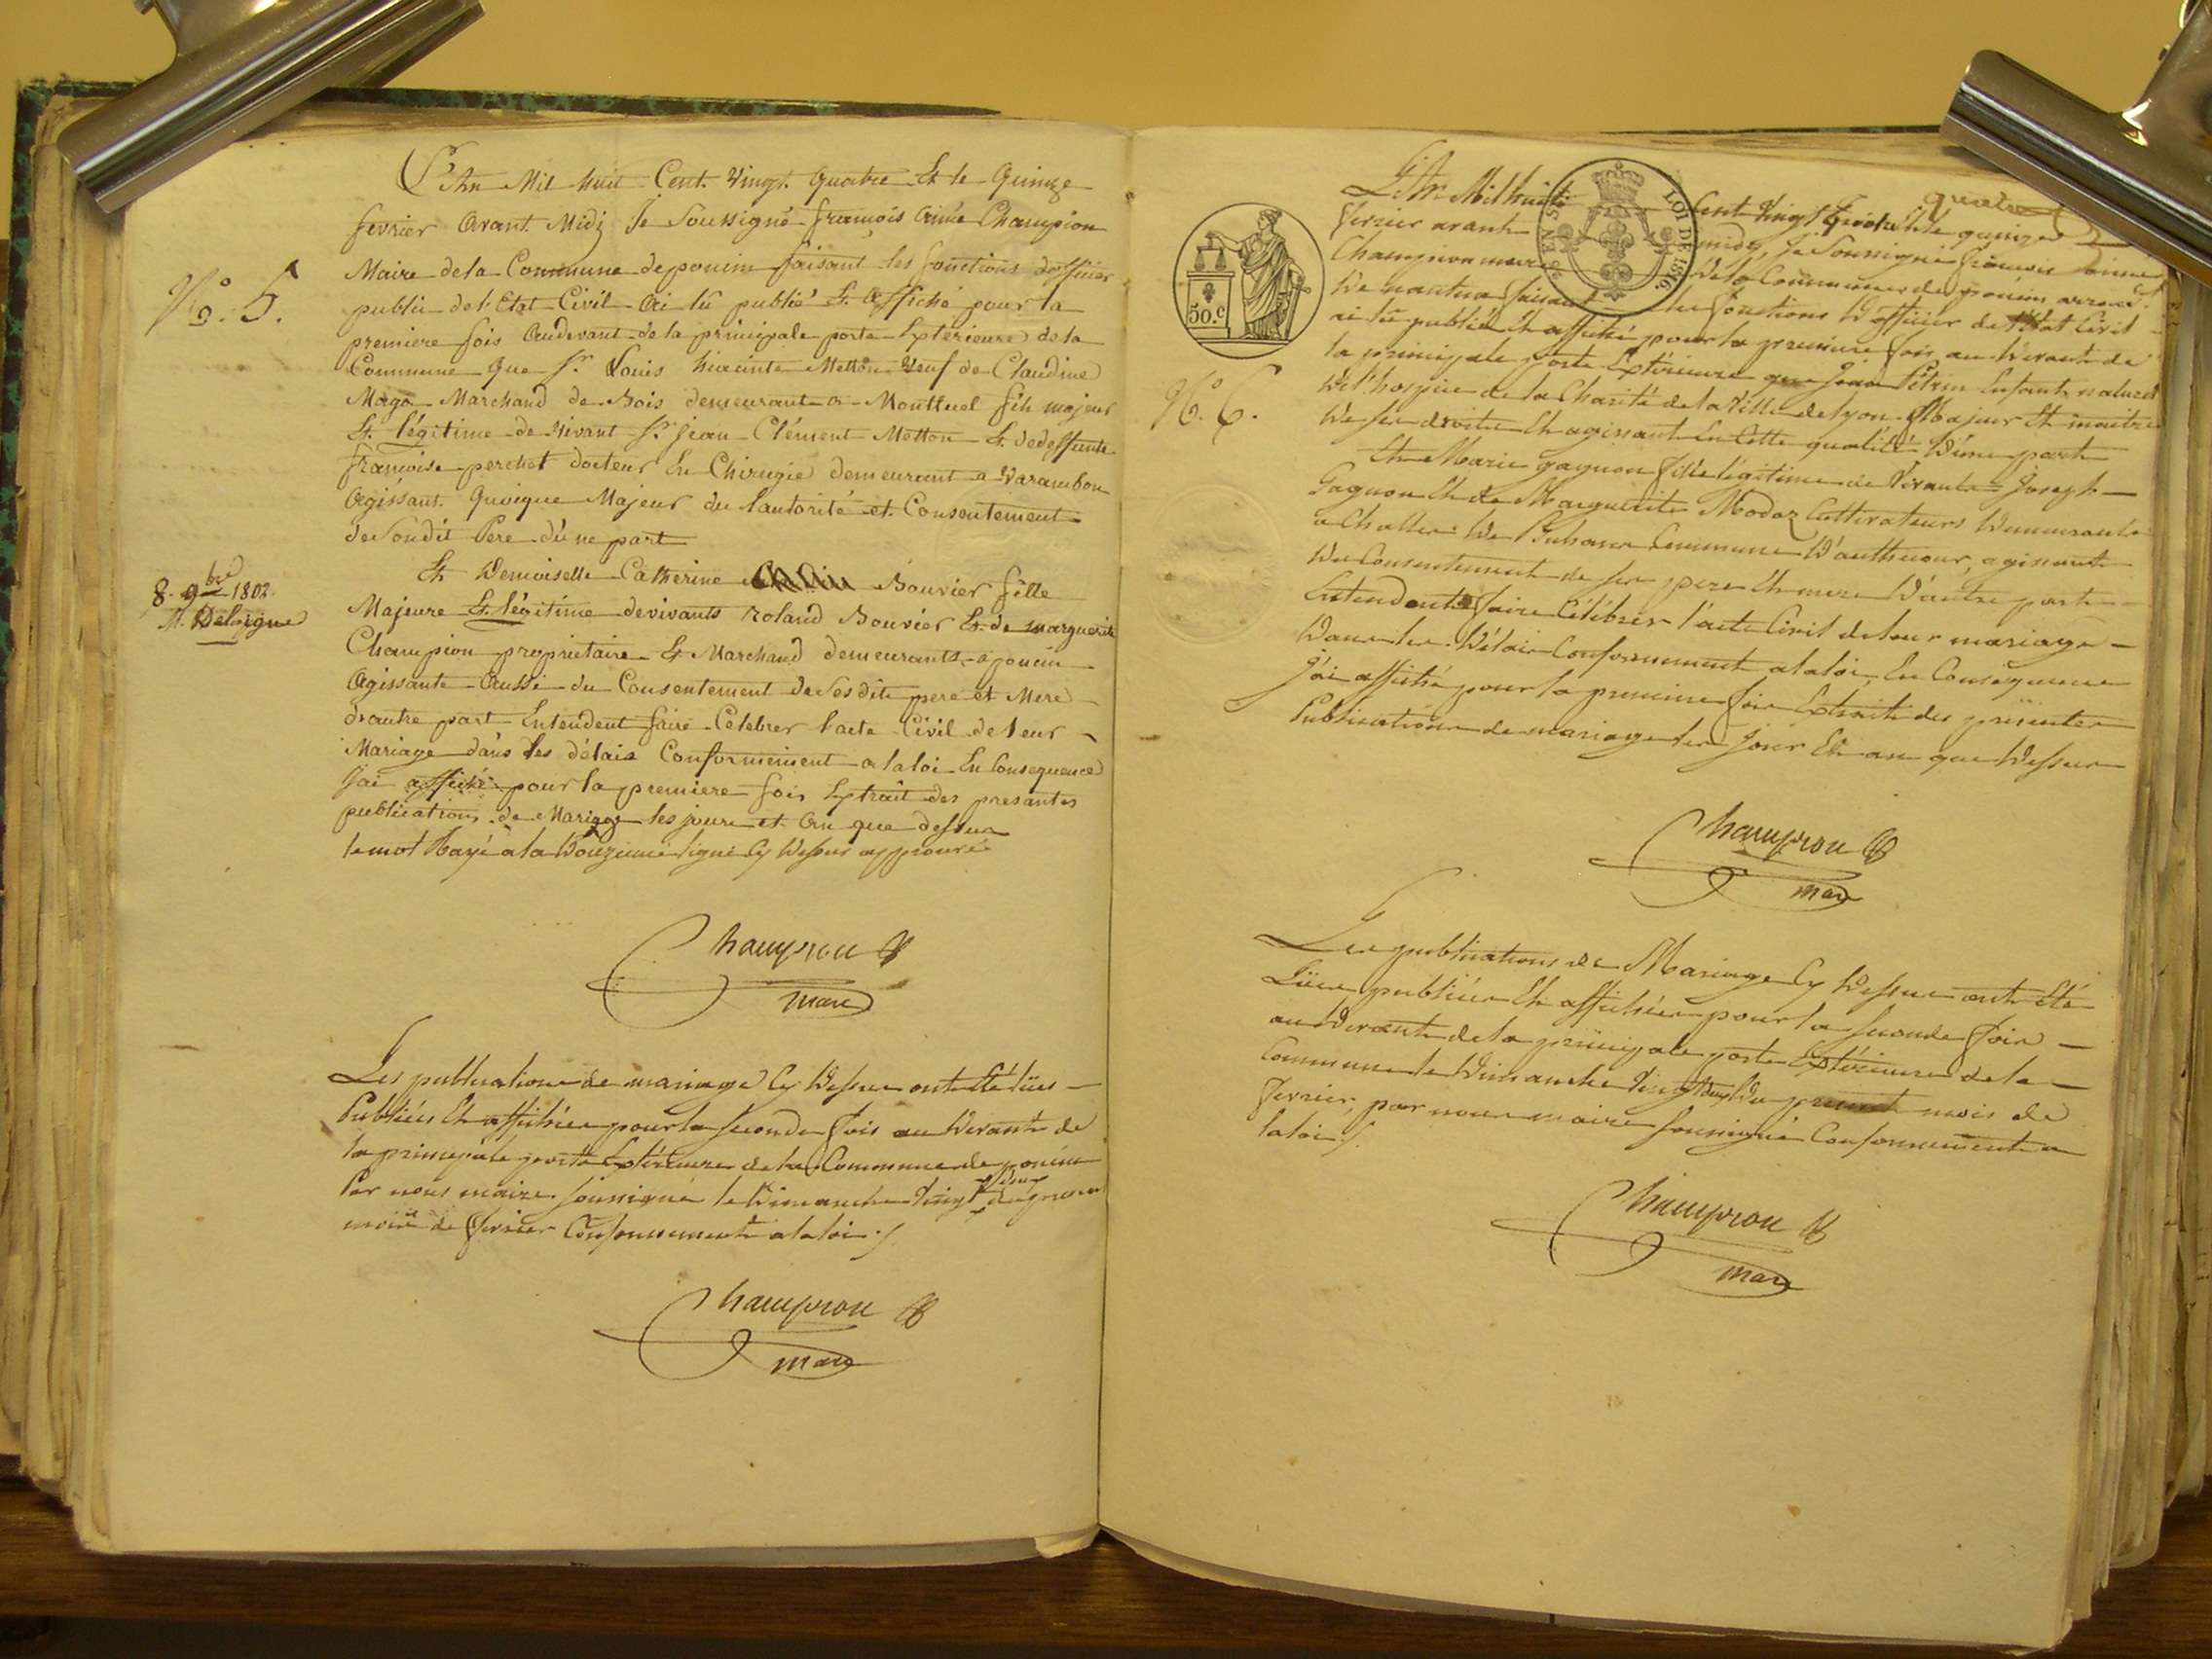 L'An Mil huit Cent. Vingt. Quatre Et le Quinze
fevrier Avant Midi Je Soussigné françois Aimé Champion
Maire de la Commune deponcin faisant les fonctions dofficier
public de l'Etat Civil Ai lû publié Et Affiché pour la
N.o 5.
premiere fois Audevant de la principale porte Extérieure de la
Commune Que Sr. Louis hiacinte Metton Veuf de Claudine
Marchand de Bois demeurant a Montluel fils majeur
Et. légitime de vivant Sr. jean Clément Metton Et. dedeffunte
françoise perchet docteur En Chirugie demeurant a Varambon
Agissant. Quoique Majeur du l'autorité et Consentement
de Soudit Pere d'une part
Et Demoiselle Catherine Bouvier fille
8. 9bre 1802.
M. Delaigue
Majeure Et. légitime devivants roland Bouvier Et. de marguerite
Champion proprietaire Et Marchand demeurants a poncin
Agissante Aussi du Consentement de Ses dits pere et Mere
d'autre part Entendent faire Célébrer l'acte Civil de leur
Mariage dans les délais Conformement a la loi En Consequence
J'ai affiché pour la premiere fois Extrait des presantes
publications de Mariage les jours et An que dessus
le mot Rayé a la Douzieme ligne Cy Dessus approuvé
Champion
maire
Les publications de mariage Cy Dessus ont Eté lües
Publiées Et affichées pour la Seconde fois au Devant de
la principale porte Extérieure de la Commune de poncin
Par nous maire soussigné le Dimanche Vingt deux du present
mois de fevrier Conformement a la loi ./.
Champion
maire
L'An Mil huit Cent Vingt quatre Et le quinze
fevrier avant midy, Je Soussigné françois aimé
Champion maire De la Commune de poncin arrond.t
De nantua faisant les fonctions D'officier de l'Etat Civil
50.c
TIMB EN SUS LOI DE 1816
ai lû publié Et affiché pour la premiere fois au Devant de
la principale porte Extérieure que Jean Enfant naturel
N.o 6.
De l'hospice de la Charité de la Ville de lyon Majeur Et maitre
De ses droits Et agissant En Cette qualité D'une part
Et Marie gagnon fille légitime de Vivants Joseph
Gagnon Et de Marguerite Modaz Cultivateurs Demeurants
a Challes De Commune D'authenour, agissante
Du Consentement de ses pere Et mere D'autre part
Entendent faire Célébrer l'acte Civil de leur mariage
Dans les Délais Conformement a la loi, En Conséquence
J'ai affiché pour la premiere fois Extrait des présentes
Publications de mariage les jour Et an que Dessus
Champion
maire
Les publications de Mariage Cy Dessus ont Eté
Lües publiées Et affichées pour la Seconde fois
au Devant de la principale porte Extérieure de la
Commune le Dimanche Vingt deux Du present mois de
fevrier, par nous maire soussigné Conformement a
la loi ./.
Champion
maire